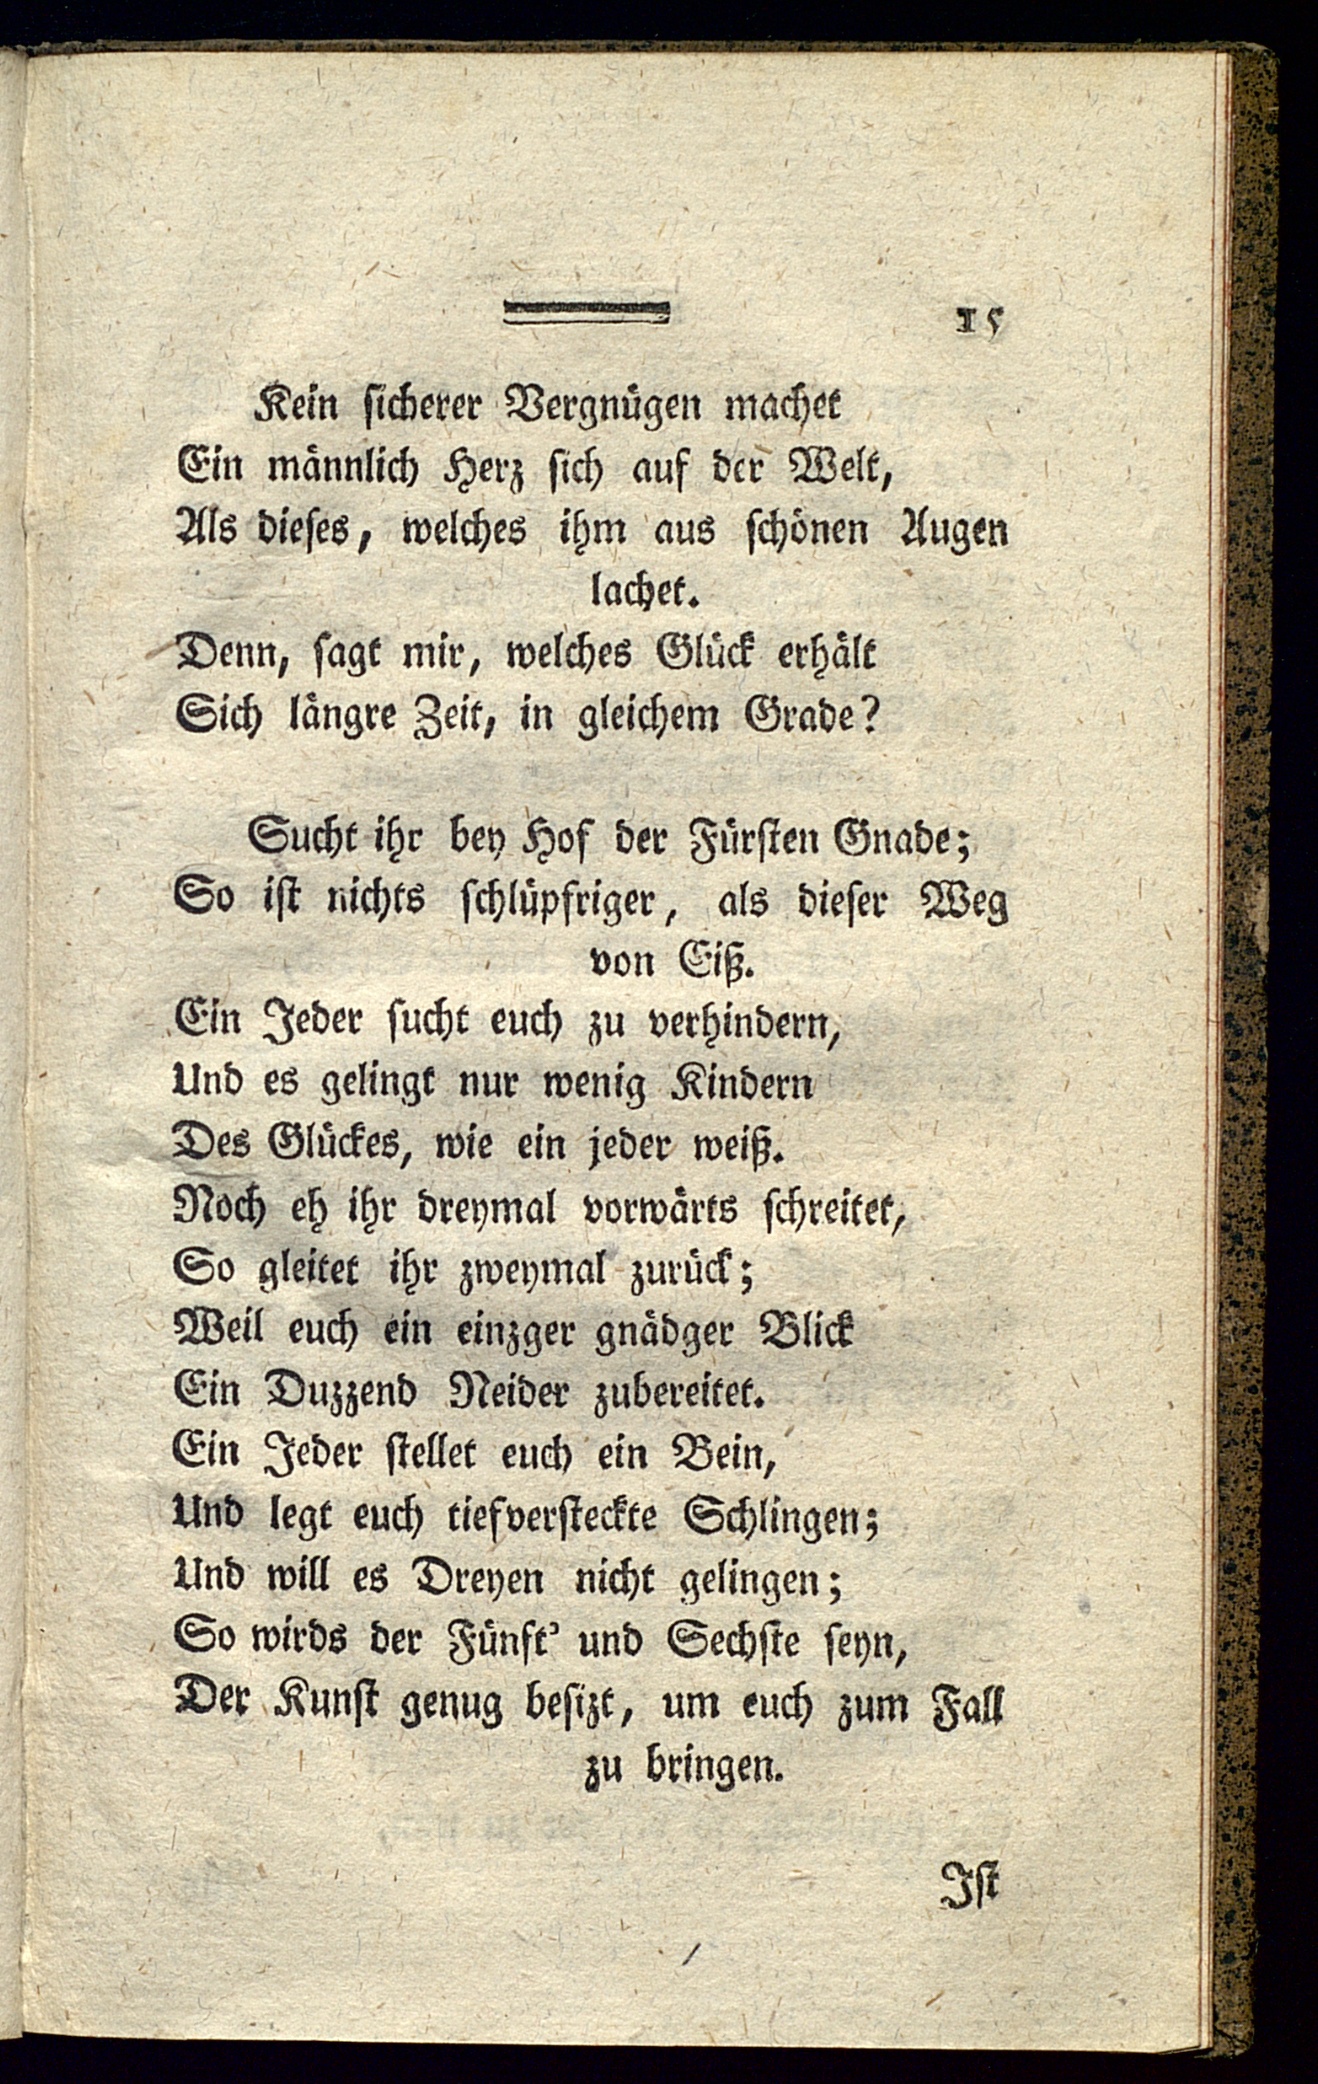 15
Kein sicherer Vergnügen machet
Ein männlich Herz sich auf der Welt,
Als dieses, welches ihm aus schönen Augen
lachet.
Denn, sagt mir, welches Glück erhält
Sich längre Zeit, in gleichem Grade?
Sucht ihr bey Hof der Fürsten Gnade;
So ist nichts schlüpfriger, als dieser Weg
von Eiß.
Ein Jeder sucht euch zu verhindern,
Und es gelingt nur wenig Kindern
Des Glückes, wie ein jeder weiß.
Noch eh ihr dreymal vorwärts schreitet,
So gleitet ihr zweymal zurück;
Weil euch ein einzger gnädger Blick
Ein Duzzend Neider zubereitet.
Ein Jeder stellet euch ein Bein,
Und legt euch tiefversteckte Schlingen;
Und will es Dreyen nicht gelingen;
So wirds der Fünft' und Sechste seyn,
Der Kunst genug besizt, um euch zum Fall
zu bringen.
Ist